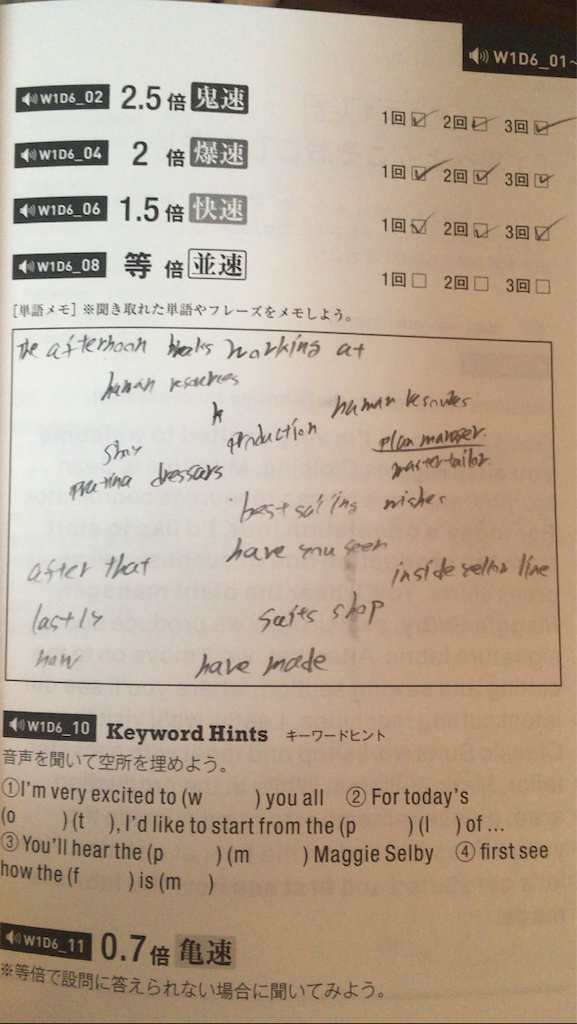 W1D6_01~
W1D6_02 2.5倍 鬼速 1回 2回 3回
W1D6_04 2倍 爆速 1回 2回 3回
W1D6_06 1.5倍 快速 1回 2回 3回
W1D6_08 等倍 並速 1回 2回 3回
[単語メモ] ※聞き取れた単語やフレーズをメモしよう。
The afternoon working at
human resources
human resources
production
plan manager.
master tailor
best selling
have you seen
after that
inside yellow line
lastly
suits shop
have made
W1D6_10 Keyword Hints キーワードヒント
音声を聞いて空所を埋めよう。
①I'm very excited to (w ) you all ② For today's
(o )(t ), I'd like to start from the (p )(l ) of ...
③ You'll hear the (p )(m ) Maggie Selby ④ first see
how the (f ) is (m )
W1D6_11 0.7倍 亀速
※等倍で設問に答えられない場合に聞いてみよう。